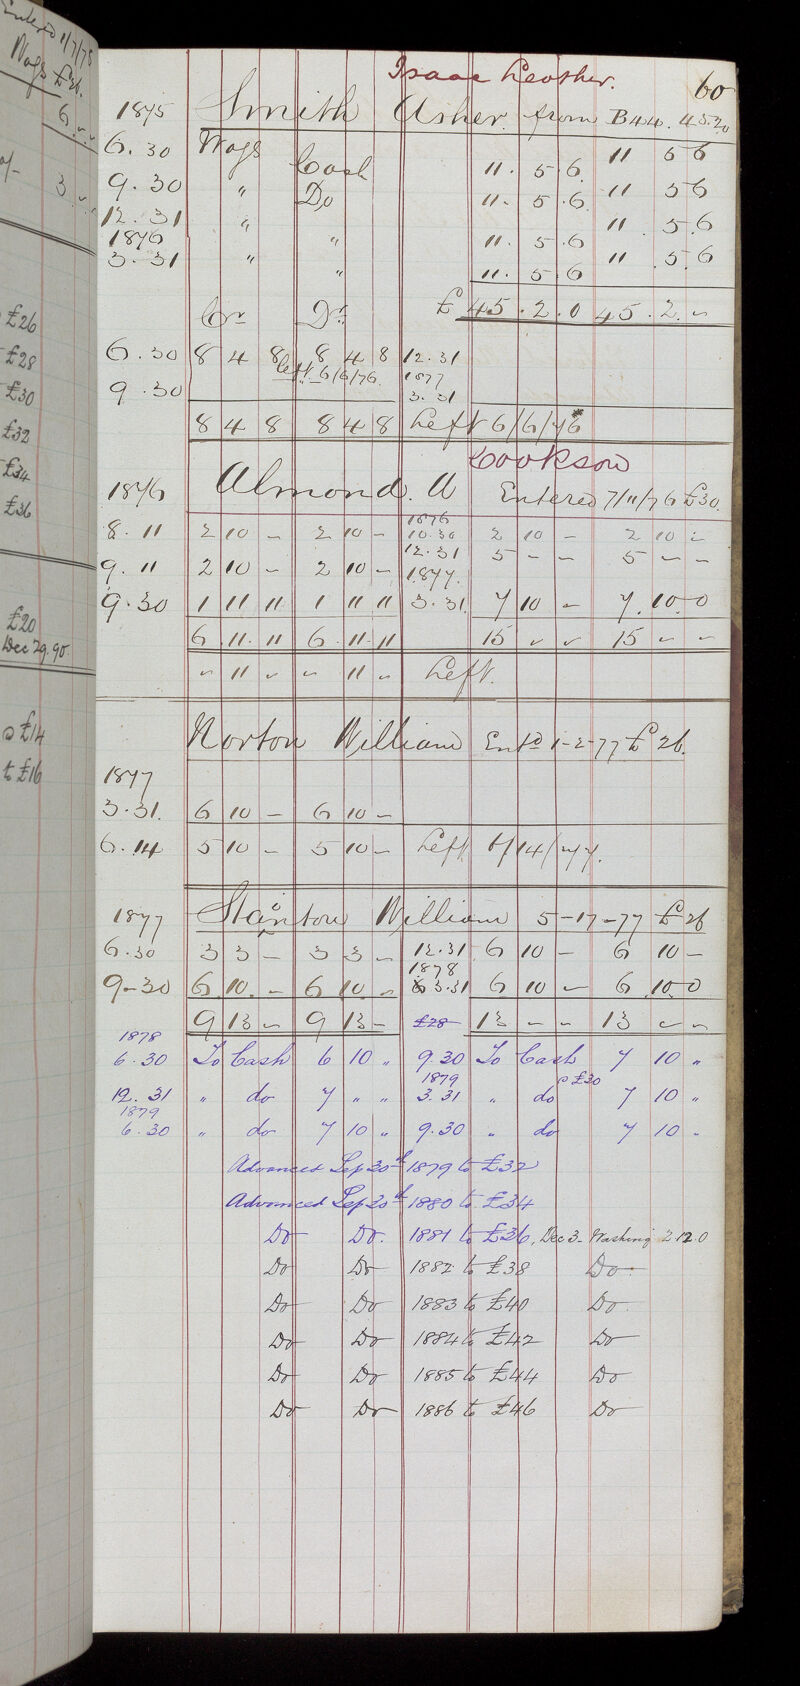 Entered 1/7/78
Wags £26.
6 " "
3 " "
£26
£28
£30
£32
£34
£36
£20
Dec 29.90
@ £14
to £16
Isaac Leather. 60
1875 Smith Asher. from B44. 45.2.0
6.30 Wags Cash 11. 5.6. 11 5 6
9.30 " Do 11. 5.6. 11 5 6
12.31 " " 11. 5.6 11 5.6
1876
3.31 " " 11. 5.6 11 5.6
Cr Dr £45.2.0 45.2.„
6.30 8 4 8 8 4 8 12.31
left 6/6/76. 1877
9.30 3.31
8 4 8 8 4 8 Left 6/6/76
Cookson
1876 Almond. A Entered 7/11/76 £30.
8.11 2 10 - 2 10 - 1876 10.30 2 10 - 2 10 -
12.31 5 - - 5 - -
9.11 2 10 - 2 10 - 1877.
9.30 1 11 11 1 11 11 3.31. 7 10 - 7.10.0
6.11.11 6.11.11 15 - - 15 - -
- 11 - - 11 - Left.
Norton William Entd 1-2-77 £26.
1877
3.31. 6 10 - 6 10 -
6.14 5 10 - 5 10 - Left 6/14/77.
1877 Stanton William 5-17-77 £26
6.30 3 3 - 3 3 - 12.31 6 10 - 6 10 -
1878
9-30 6.10.- 6 10 - 3.31 6 10 - 6.10.0
9 13 - 9 13 - £28 13 - - 13 - -
1878
6.30 To Cash 6 10 " 9.30 To Cash 7 10 "
1879 @ £30
12.31 " do 7 " " 3.31 " do 7 10 "
1879
6.30 " do 7 10 " 9.30 " do 7 10 "
Advanced Sep 30th 1879 to £32
Advanced Sep 30th 1880 to £34
Do Do. 1881 to £36, Dec 3. Washing 2 12 0
Do Do 1882 to £38 Do
Do Do 1883 to £40 Do
Do Do 1884 to £42 Do
Do Do 1885 to £44 Do
Do Do 1886 to £46 Do